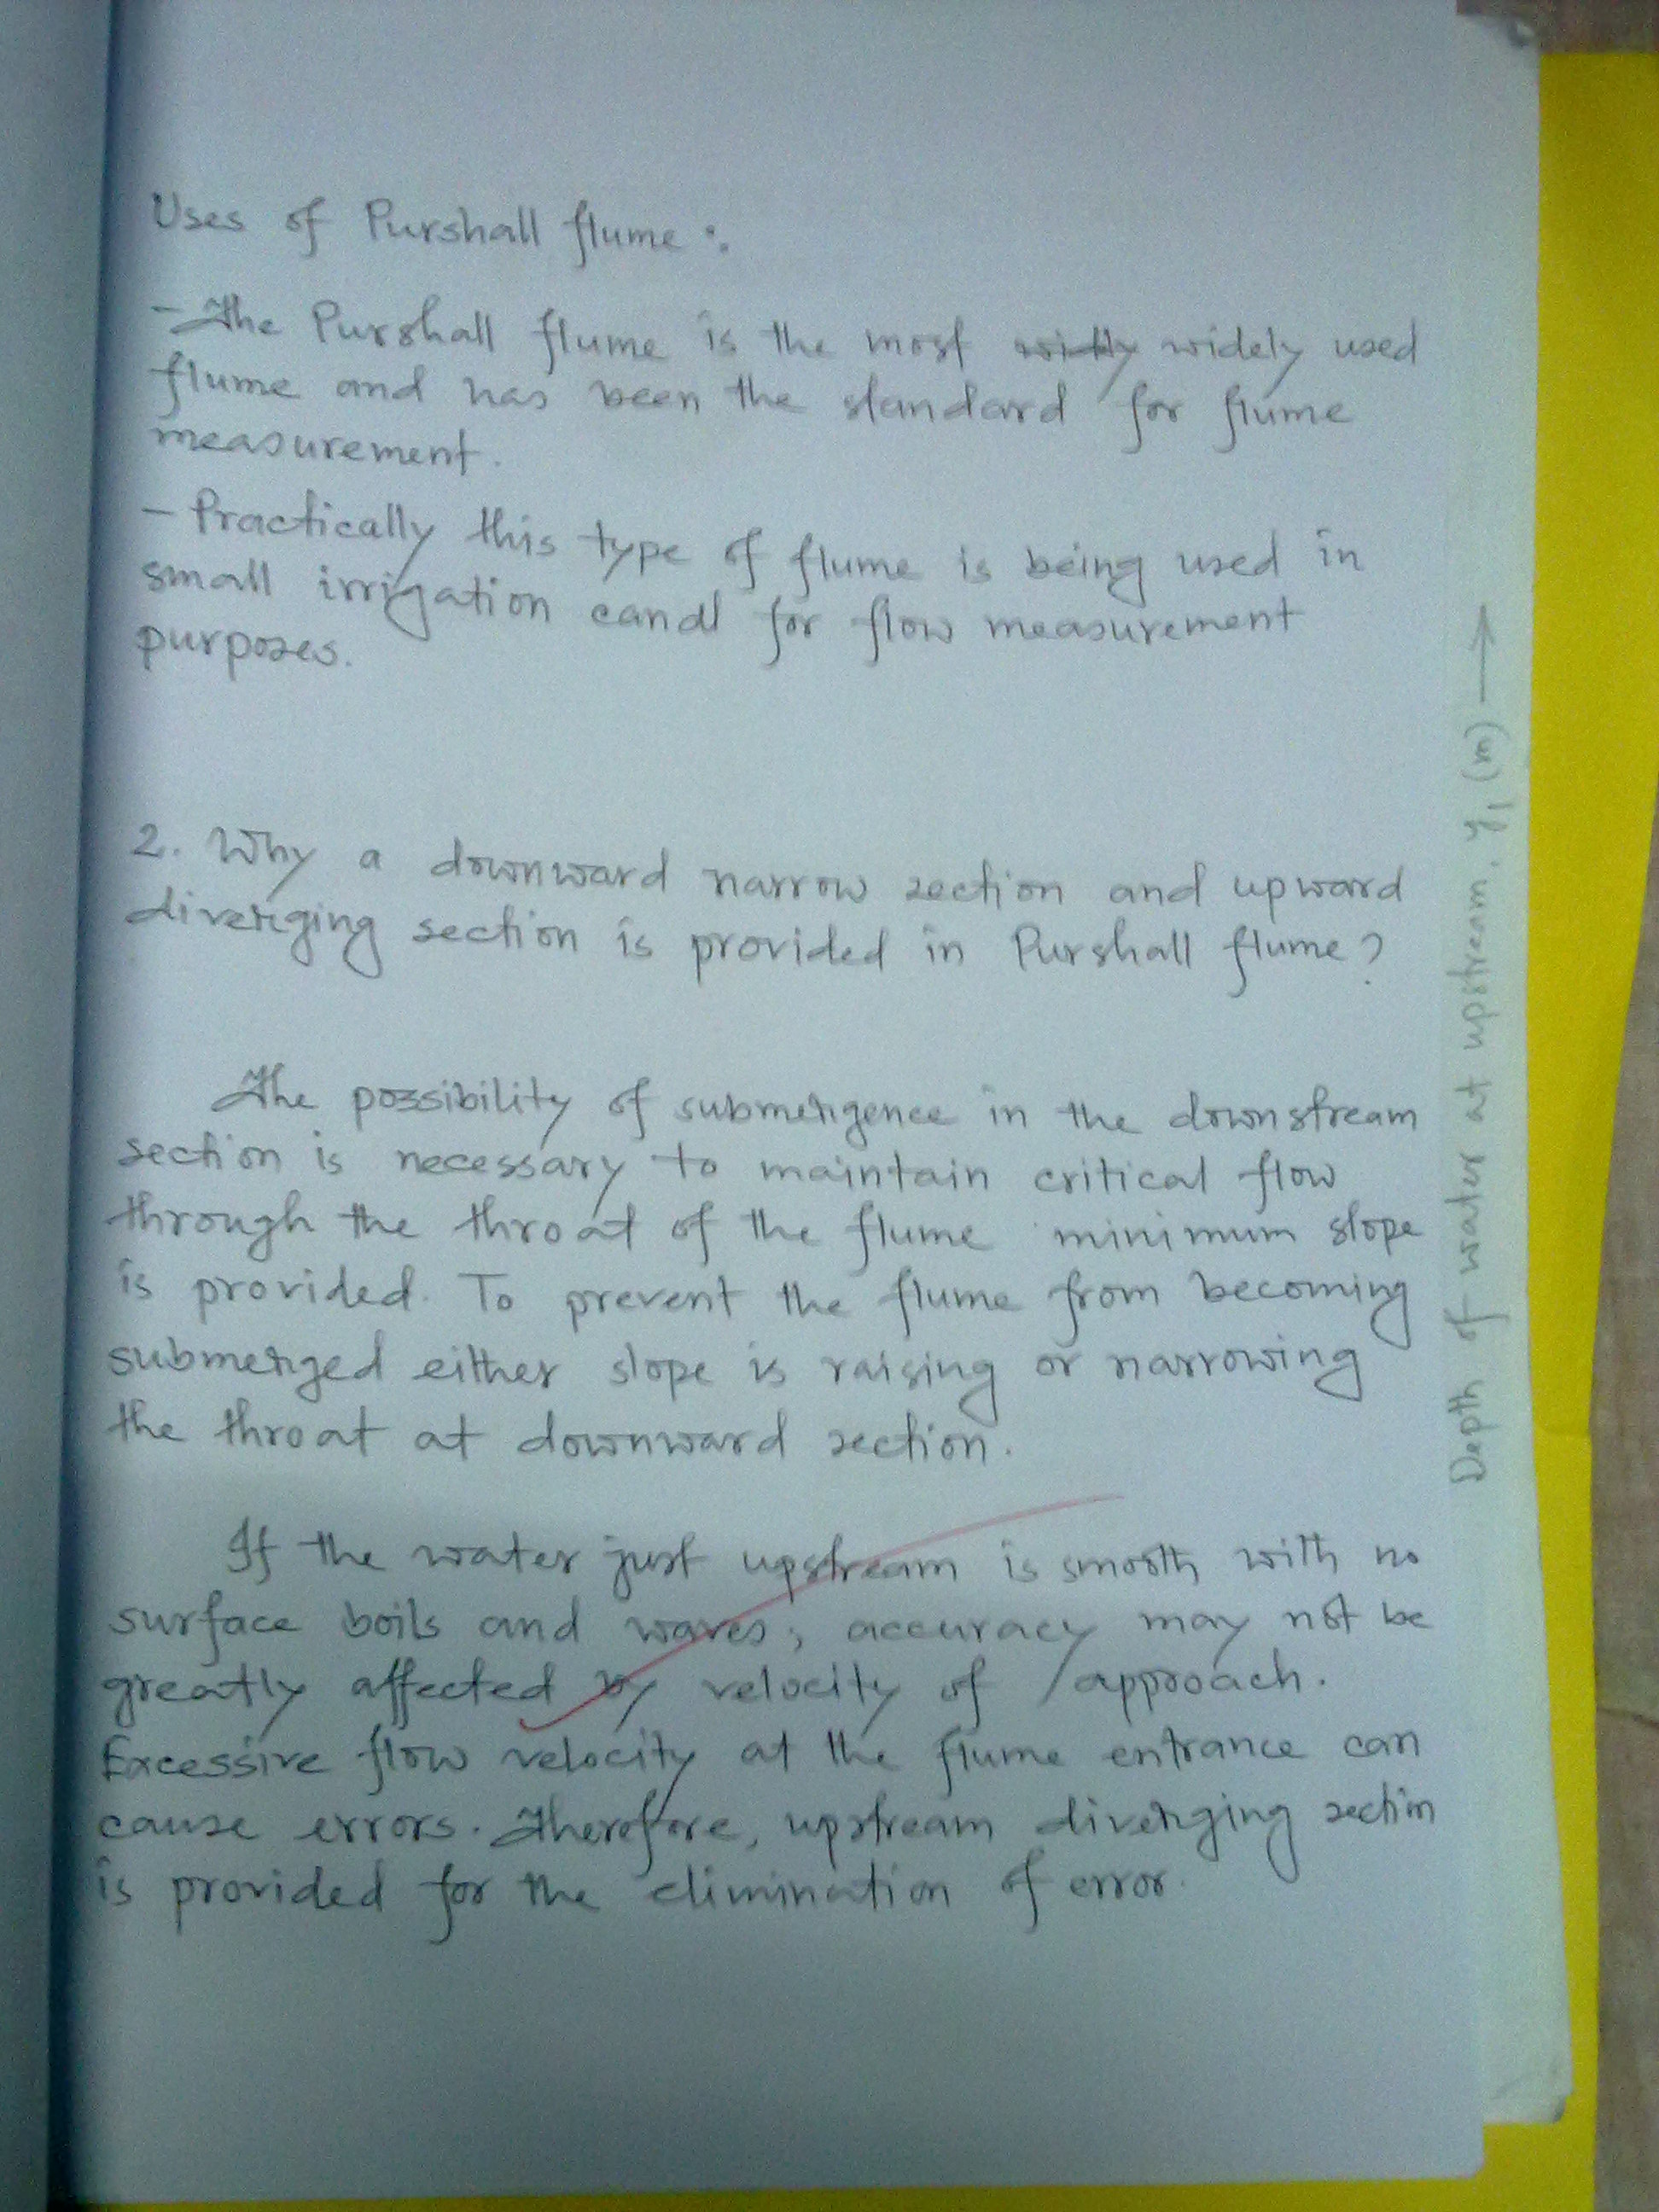 Uses of Purshall flume :
- The Purshall flume is the most widely used
flume and has been the standard for flume
measurement.
- Practically this type of flume is being used in
small irrigation canal for flow measurement
purposes.
2. Why a downward narrow section and upward
diverging section is provided in Purshall flume?
The possibility of submergence in the downstream
section is necessary to maintain critical flow
through the throat of the flume minimum slope
is provided. To prevent the flume from becoming
submerged either slope is raising or narrowing
the throat at downward section.
If the water just upstream is smooth with no
surface boils and waves, accuracy may not be
greatly affected by velocity of approach.
Excessive flow velocity at the flume entrance can
cause errors. Therefore, upstream diverging section
is provided for the elimination of error.
Depth of water at upstream, y₁ (m) →